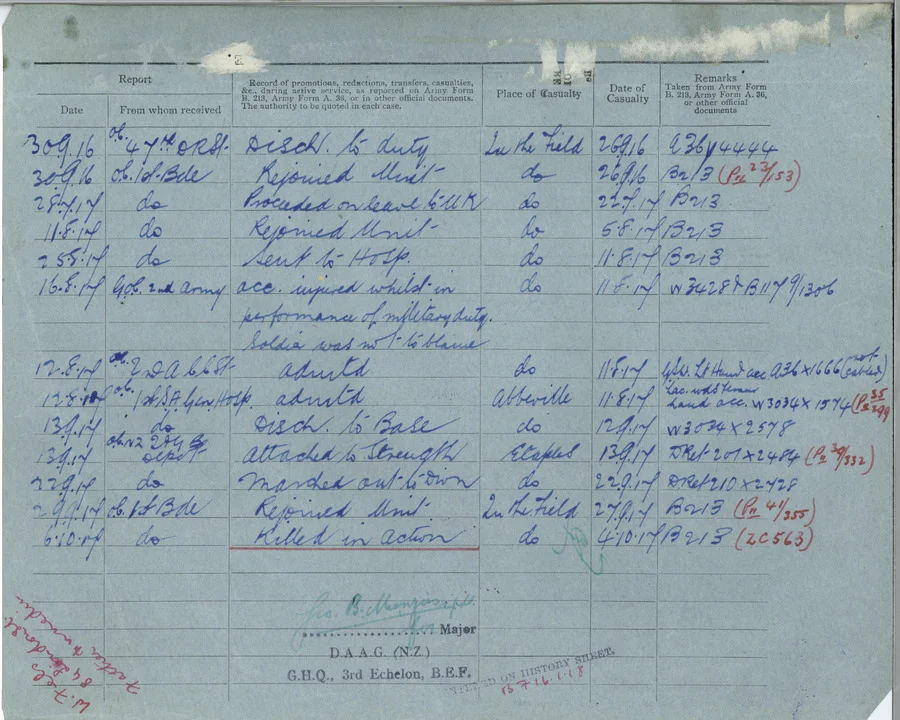 Report
Record of promotions, reductions, transfers, casualties,
&c., during active service, as reported on Army Form
B. 213, Army Form A. 36, or in other official documents.
The authority to be quoted in each case.
Place of Casualty
Date of
Casualty
Remarks
Taken from Army Form
B. 213, Army Form A. 36,
or other official
documents
Date
From whom received
30.9.16 Disch. to duty In the Field 26.9.16 A36 4444
30.9.16 Ob. 1st Bde Rejoined Unit do 26.9.16 B213 (Pn 23/153)
28.7.17 do Proceeded on leave to UK do 22.7.17 B213
11.8.17 do Rejoined Unit do 5.8.17 B213
25.8.17 do Sent to Hosp. do 11.8.17 B213
16.8.17 2nd Army acc. injured whilst in do 11.8.17 W3428
performance of military duty.
Soldier was not to blame
12.8.17 admitd do 11.8.17 Lt Hand acc A36 X 1666 (not cabled)
Ob. 1st S.A Gen Hosp. admitd Abbeville 11.8.17 hand acc. W3034 X 1574 (Pn 35/299)
13.9.17 do Disch. to Base do 12.9.17 W3034 X 2578
13.9.17 Depot attached to Strength Etaples 13.9.17 DRet 207 X 2484 (Pn 39/332)
22.9.17 do Marched out to Divn do 22.9.17 DRet 210 X 2728
29.9.17 Ob. 1st Bde Rejoined Unit In the Field 27.9.17 B213 (Pn 41/355)
6.10.17 do Killed in Action do 4.10.17 B213 (ZC563)
Major
D.A.A.G. (N.Z.)
G.H.Q., 3rd Echelon, B.E.F.
ON HISTORY SHEET.
16.1.18